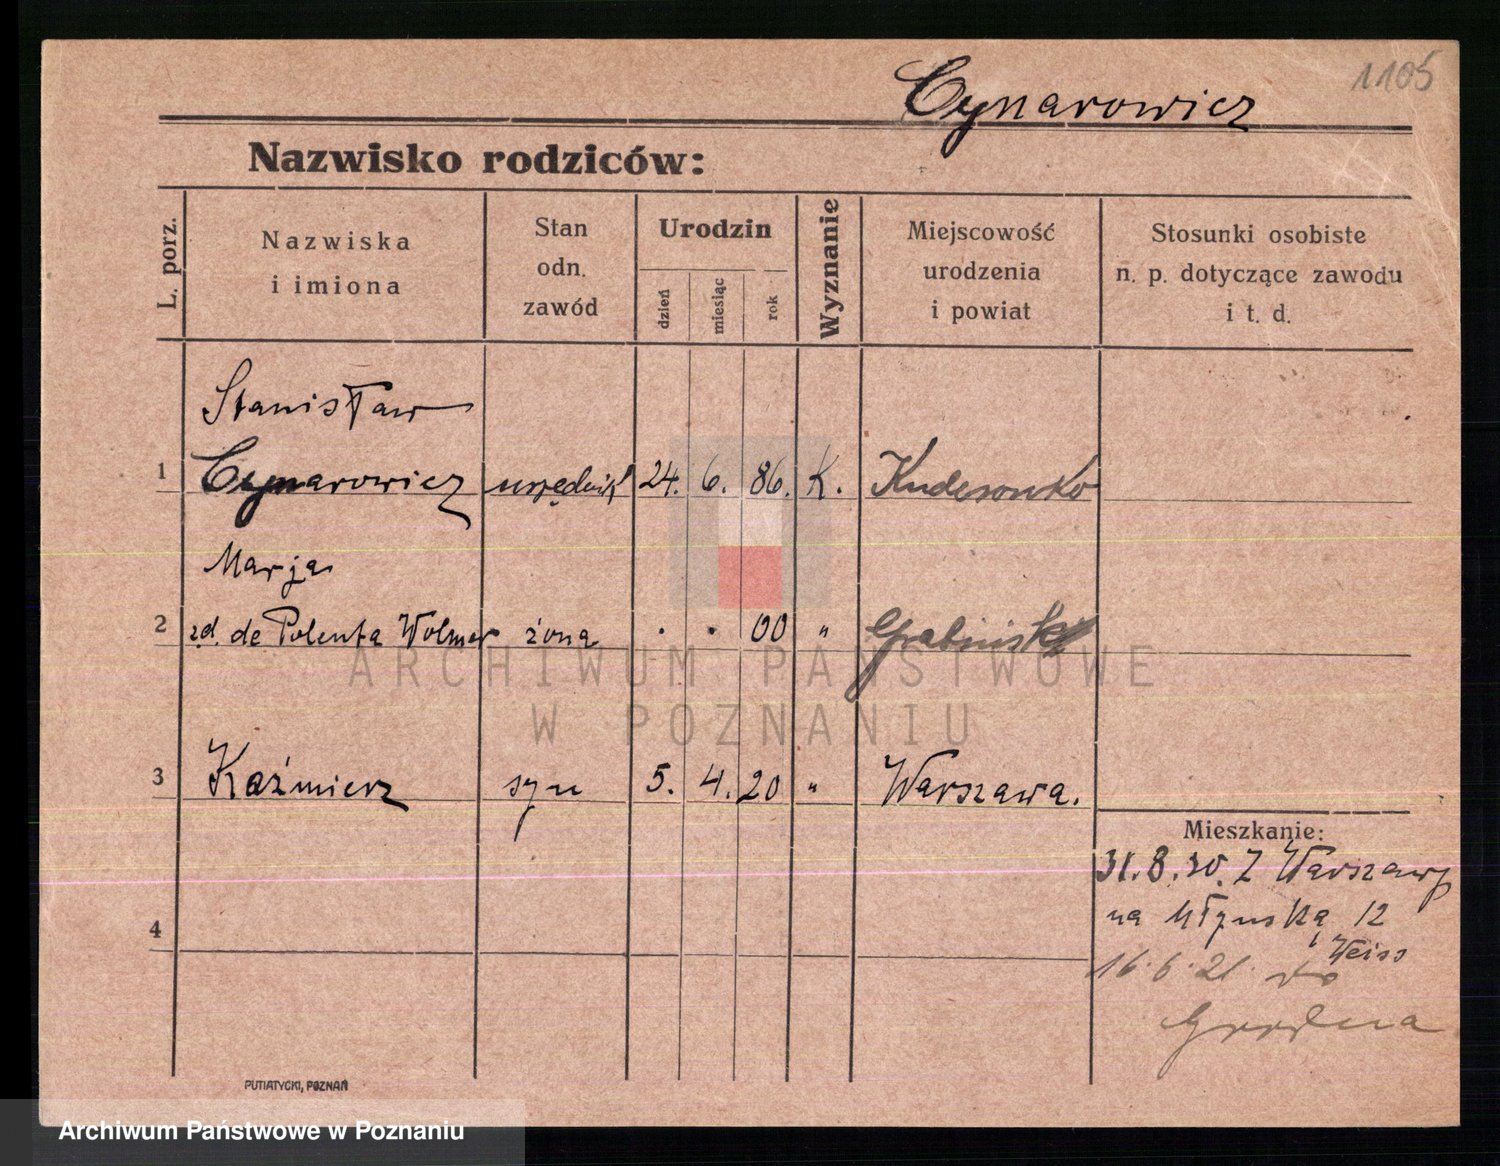 1105
Cynarowicz
Nazwisko rodziców:
L. porz.
Nazwiska
i imiona
Stan
odn.
zawód
Urodzin
dzień
miesiąc
rok
Wyznanie
Miejscowość
urodzenia
i powiat
Stosunki osobiste
n. p. dotyczące zawodu
i t. d.
Stanisław
1 Cynarowicz urzędnik 24. 6. 86. K.
Marja
2 zd. de Polenta Wolmer żona . . 00 "
3 Kaźmierz syn 5. 4. 20 " Warszawa.
Mieszkanie:
31.8.20. Z Warszawy
na Młyńską 12
Weiss
4
16.6.21. do
Grodna
PUTIATYCKI, POZNAŃ
ARCHIWUM PAŃSTWOWE
W POZNANIU
Archiwum Państwowe w Poznaniu